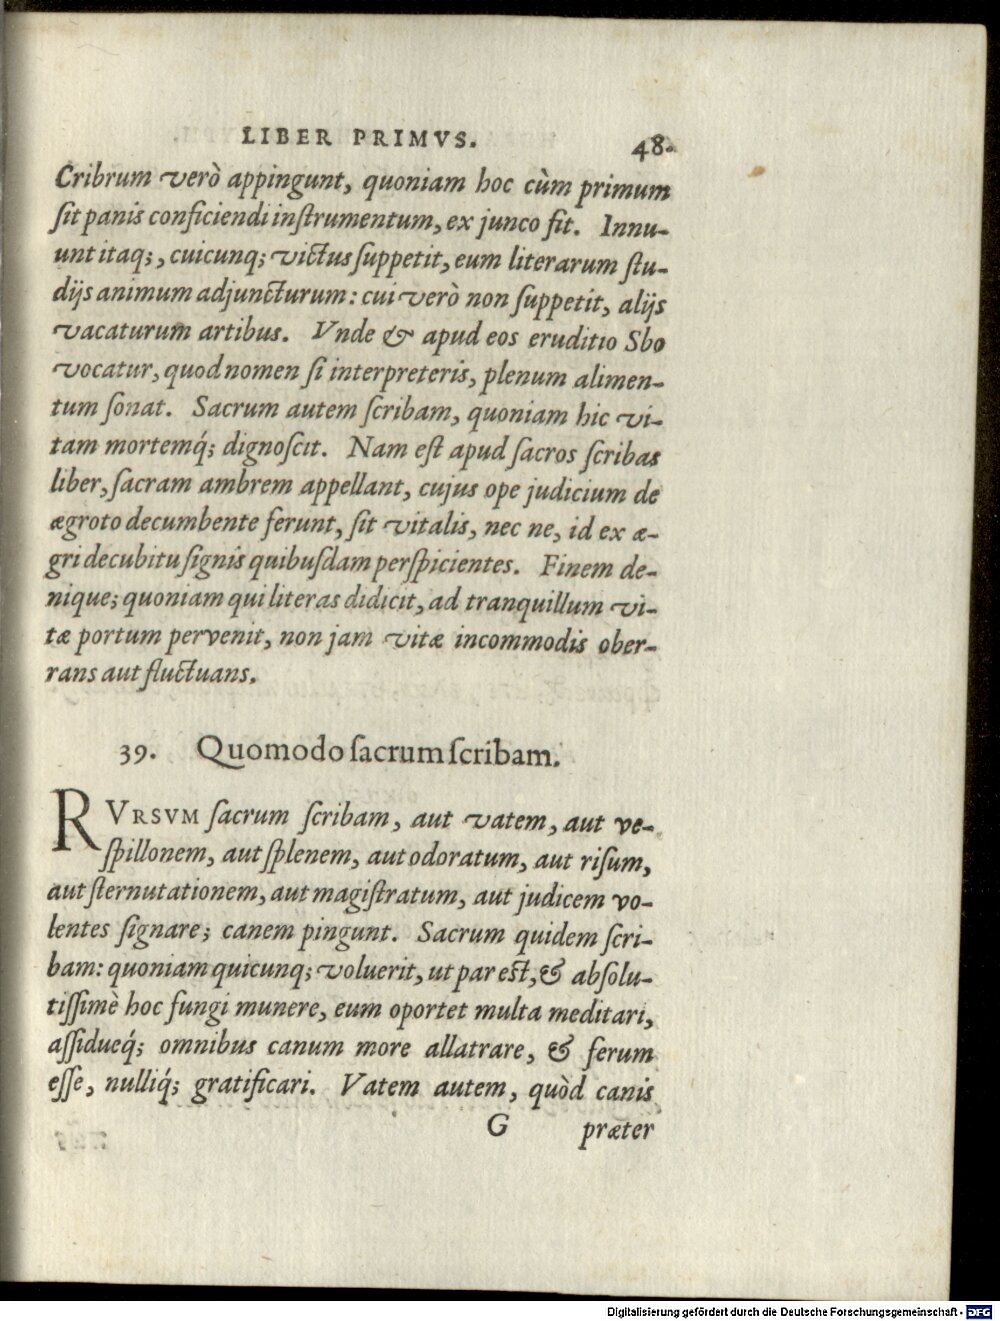 LIBER PRIMVS. 48.
Cribrum verò appingunt, quoniam hoc cùm primum
ſit panis conficiendi inſtrumentum, ex junco fit. Innu-
unt itaq;, cuicunq; victus ſuppetit, eum literarum ſtu-
dijs animum adjuncturum: cui verò non ſuppetit, alijs
vacaturum artibus. Vnde & apud eos eruditio Sbo
vocatur, quod nomen ſi interpreteris, plenum alimen-
tum ſonat. Sacrum autem ſcribam, quoniam hic vi-
tam mortemq́; dignoſcit. Nam eſt apud ſacros ſcribas
liber, ſacram ambrem appellant, cujus ope judicium de
ægroto decumbente ferunt, ſit vitalis, nec ne, id ex æ-
gri decubitu ſignis quibuſdam perſpicientes. Finem de-
nique; quoniam qui literas didicit, ad tranquillum vi-
tæ portum pervenit, non jam vitæ incommodis ober-
rans aut fluctuans.
39. Quomodo ſacrum ſcribam.
RVRSVM ſacrum ſcribam, aut vatem, aut ve-
ſpillonem, aut ſplenem, aut odoratum, aut riſum,
aut ſternutationem, aut magiſtratum, aut judicem vo-
lentes ſignare; canem pingunt. Sacrum quidem ſcri-
bam: quoniam quicunq; voluerit, ut par eſt, & abſolu-
tiſſimè hoc fungi munere, eum oportet multa meditari,
aſſidueq́; omnibus canum more allatrare, & ferum
eſſe, nulliq́; gratificari. Vatem autem, quòd canis
G præter
Digitalisierung gefördert durch die Deutsche Forschungsgemeinschaft - DFG